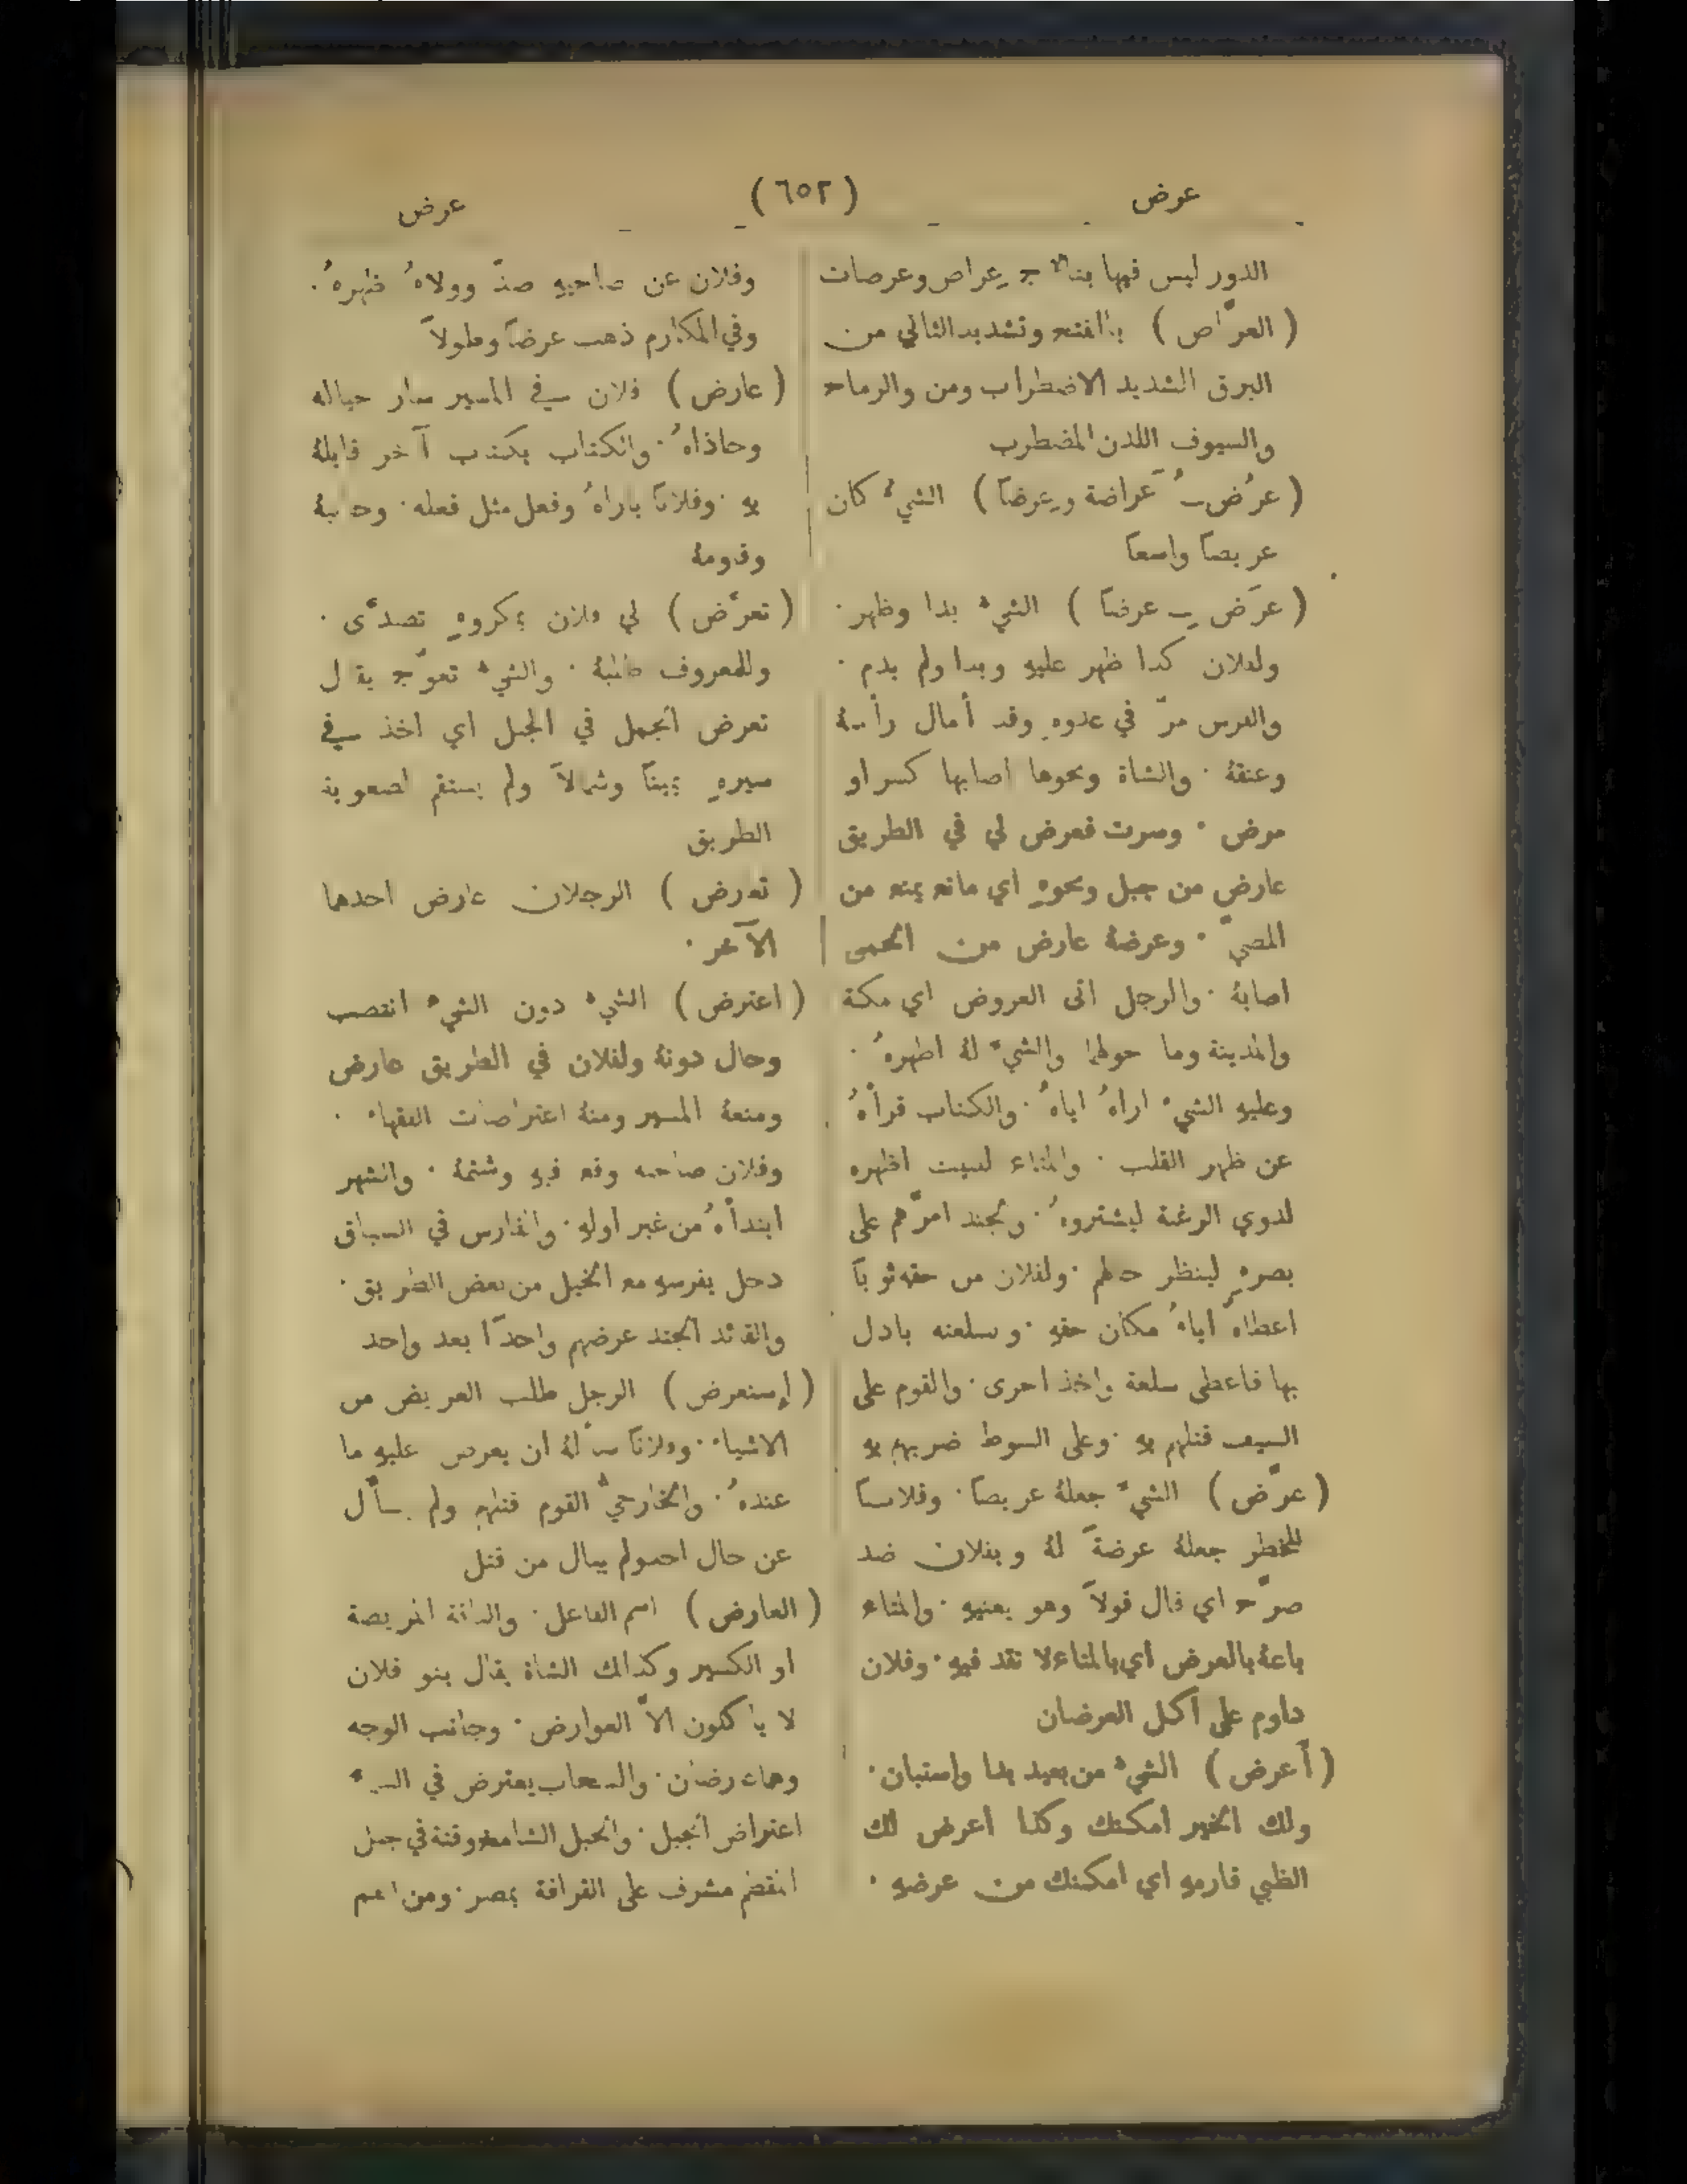 عرض (٦٥٢) عرض
الدور ليس فيها بناء ج عِراص وعرصات
(العرَّاص) بالفتح وتشديد الثاني من
البرق الشديد الاضطراب ومن والرماح
والسيوف اللدن المضطرب
(عرُض ـُ عَراضة وعِرضاً) الشيءُ كان
عريضاً واسعاً
(عرَض ـِ عرضاً) الشيءُ بدا وظهر .
ولفلان كذا ظهر عليهِ وبدا ولم يدم .
والفرس مرّ في عدوهِ وقد أمال رأسهُ
وعنقهُ . والشاة ونحوها اصابها كسر او
مرض . وسرت فعرض لي في الطريق
عارض من جبل ونحوهِ اي مانع يمنع من
المضيّ . وعرضهُ عارض من الحمى
اصابهُ . والرجل اتى العروض اي مكة
والمدينة وما حولهما والشيءَ لهُ اظهرهُ .
وعليهِ الشيءَ اراهُ اياهُ . والكتاب قرأهُ
عن ظهر القلب . والمتاع للبيت اظهره
لذوي الرغبة ليشتروهُ . والجند امرَّهم على
بصرهِ لينظر حالهم . ولفلان من حقه ثوباً
اعطاهُ اياهُ مكان حقهِ . وسلعته بادل
بها فاعطى سلعة واخذ اخرى . والقوم على
السيف قتلهم بهِ . وعلى السوط ضربهم بهِ
(عرَّض) الشيءَ جعلهُ عريضاً . وفلاناً
للخطر جعلهُ عرضةً لهُ وبفلان ضد
صرَّح اي قال قولاً وهو يعنيهِ . والمتاع
باعهُ بالعرض اي بالمتاع لا نقد فيهِ . وفلان
داوم على اكل العرضان
(أعرض) الشيءُ من بعيد بدا واستبان .
ولك الخير امكنك وكذا اعرض لك
الظبي فارمهِ اي امكنك من عرضهِ .
وفلان عن صاحبهِ صدّ وولاهُ ظهرهُ .
وفي المكارم ذهب عرضاً وطولاً
(عارض) فلان في المسير سار حياله
وحاذاهُ . والكتاب بكتاب آخر قابلهُ
بهِ . وفلاناً باراهُ وفعل مثل فعله . وجانبهُ
وقاومهُ
(تعرَّض) لي فلان بمكروهٍ تصدَّى .
وللمعروف طلبهُ . والشيءُ تعوّج يقال
تعرض الجمل في الجبل اي اخذ في
سيرهِ يميناً وشمالاً ولم يستقم لصعوبة
الطريق
(تعارض) الرجلان عارض احدهما
الآخر .
(اعترض) الشيءُ دون الشيءِ انتصب
وحال دونهُ ولفلان في الطريق عارض
ومنعهُ المسير ومنهُ اعتراضات الفقهاء .
وفلان صاحبه وقع فيهِ وشتمهُ . والشهر
ابتدأهُ من غير اولهِ . والفارس في السباق
دخل بفرسهِ مع الخيل من بعض الطريق .
والقائد الجند عرضهم واحدًا بعد واحد
(إستعرض) الرجل طلب العريض من
الاشياء . وفلاناً سألهُ ان يعرض عليهِ ما
عندهُ . والخارجيُّ القوم قتلهم ولم يسأل
عن حال احد ولم يبال من قتل
(العارض) اسم الفاعل . والناقة المريضة
او الكسير وكذلك الشاة يقال بنو فلان
لا ياكلون الاَّ العوارض . وجانب الوجه
وهما عارضان . والسحاب يعترض في السماء
اعتراض الجبل . والجبل الشامخ وقنة في جبل
المقطم مشرف على القرافة بمصر . ومن الفم